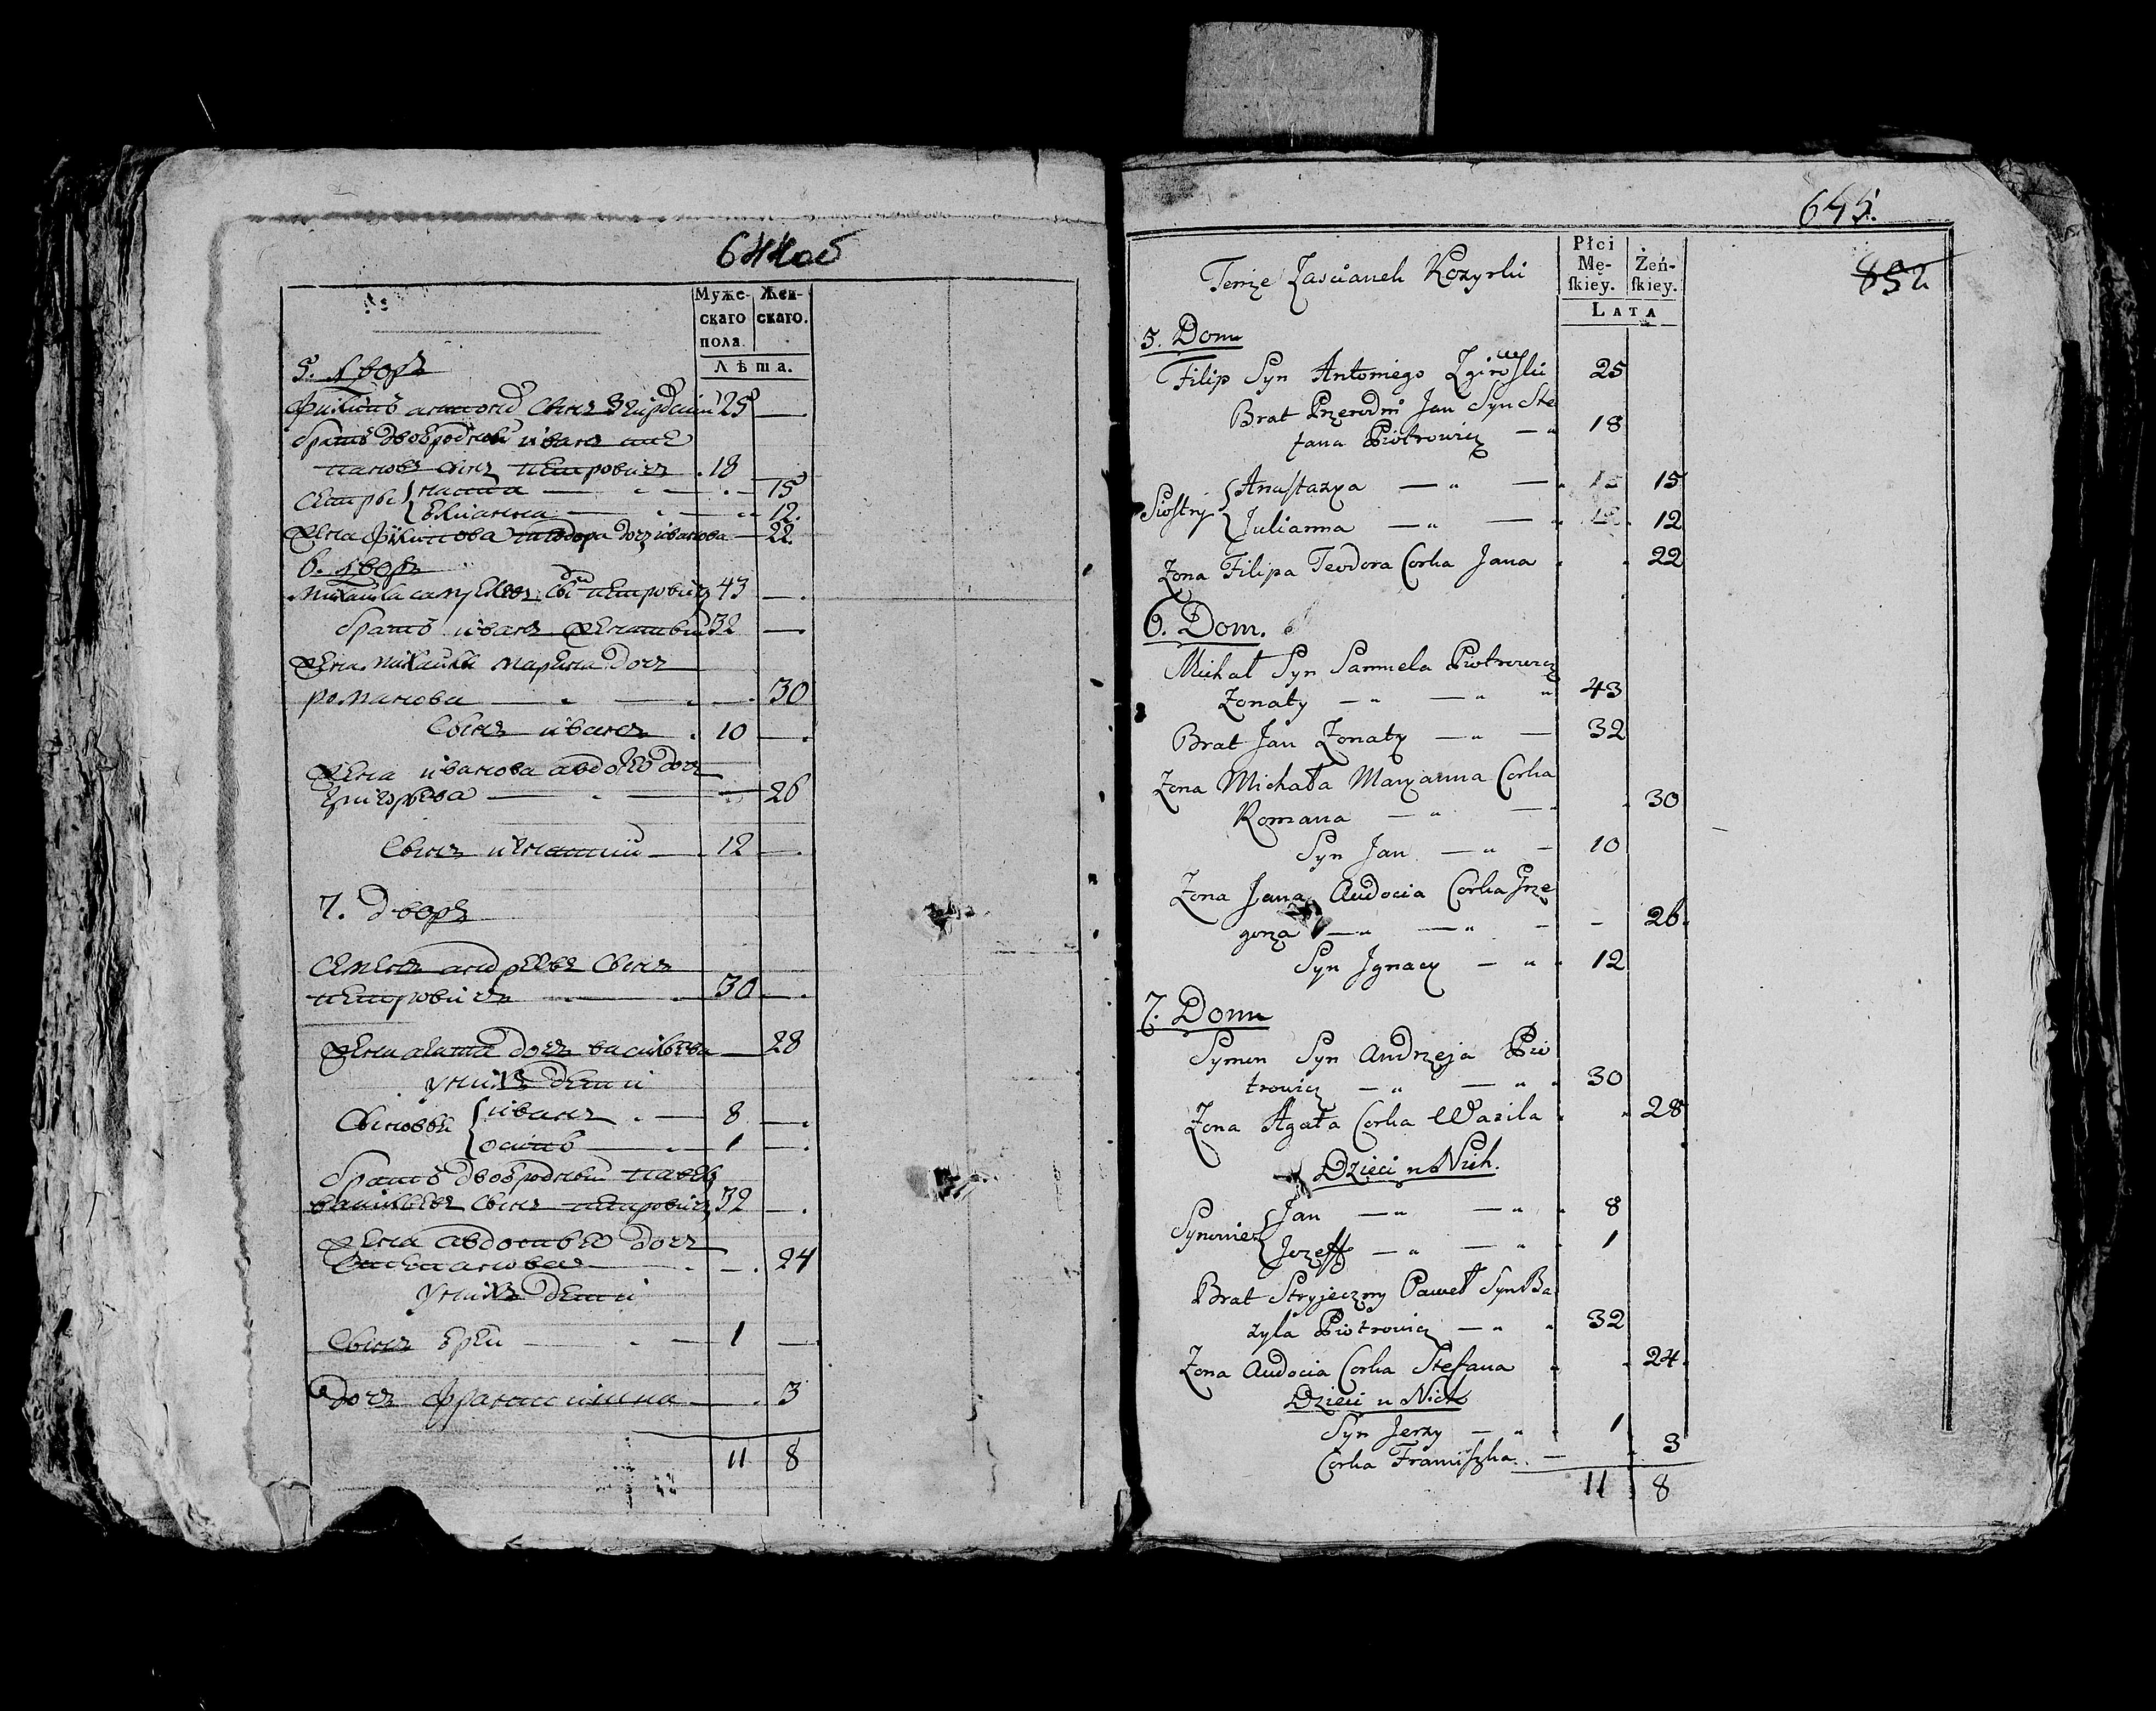 644об
Муже-
скаго
пола.
Жен-
скаго.
Лѣта.
5. дворъ
Филипъ антоновъ сынъ 25 —
братъ двоюродной иванъ сте
пановъ сынъ петровичъ 18
сестры 15
юлианна — 12.
жена филипова теодора дочь иванова — 22.
6. дворъ
михаила самуелевъ сынъ петровичъ 43 —
братъ иванъ женатый 32 —
жена михаила марьяна дочь
романова — 30
сынъ иванъ 10 —
жена иванова авдотья дочь
григорьева — 26
сынъ игнатий — 12 —
7. дворъ
семенъ андреевъ сынъ
петровичъ 30 —
жена агата дочь васильева — 28
у нихъ дети
сыновьи иванъ — 8 —
осипъ — 1 —
братъ двоюродный павелъ
васильевъ сынъ петровичъ 32 —
жена авдотья дочь
степанова — 24
у нихъ дети
сынъ юрей — 1 —
дочь францишка — 3
11 8
645.
852
Tenże Zascianek Kozyrki
Płci
Mę-
ſkiey.
Żeń-
ſkiey.
LATA
5. Dom
Filip Syn Antoniego Zgirowski 25
Brat Przerodni Jan Syn Ste
fana Piotrowicz — 18
Siostry Anastazya — 15
Julianna — 12
Zona Filipa Teodora Corka Jana 22
6. Dom.
Michał Syn Samuela Piotrowicz
Zonaty — 43
Brat Jan Zonaty — 32
Zona Michała Maryanna Corka
Romana — 30
Syn Jan — 10
Zona Jana Audocia Corka Grze
gorza — 26.
Syn Jgnacy — 12
7. Dom
Symon Syn Andrzeja Pio
trowicz — 30
Zona Agata Corka Wasila 28
Dzieci u Nich.
Synowie Jan — 8
Jozeff — 1
Brat Stryjeczny Paweł Syn Ba
zyla Piotrowicz — 32
Zona Audocia Corka Stefana 24.
Dzieci u Nich
Syn Jerzy — 1
Corka Franciszka — 3
11 8